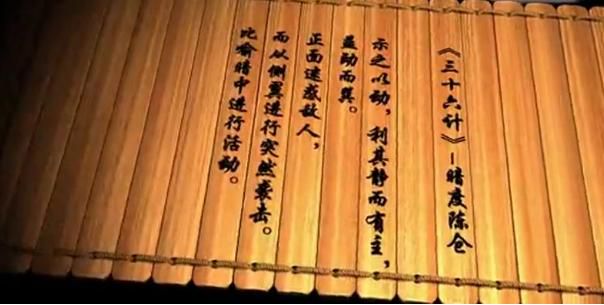 《三十六计》–暗度陈仓
示之以动，利其静而有主，
益动而巽。
正面迷惑敌人，
而从侧翼进行突然袭击。
比喻暗中进行活动。